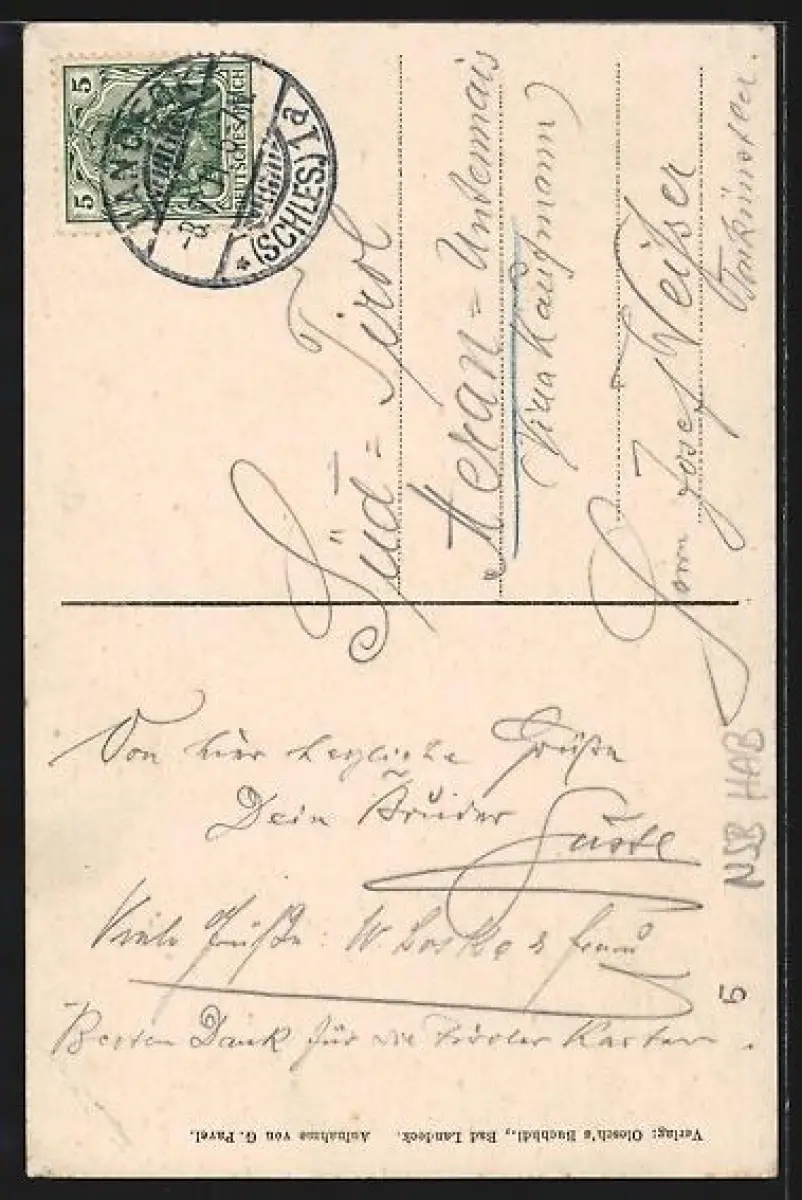 5
5
DEUTSCHES REICH
LANDECK
(SCHLES.) 1a
Herrn Josef Weisser
Tonkünstler.
Meran = Untermais
(Villa Kaufmann)
Süd = Tirol
Von hier herzliche Grüße
Dein Bruder
Viele Grüße: W. & Frau
Besten Dank für die Tiroler Karten.
NSB HAB
5
Verlag: Olesch's Buchhdl., Bad Landeck. Aufnahme von G. Pavel.